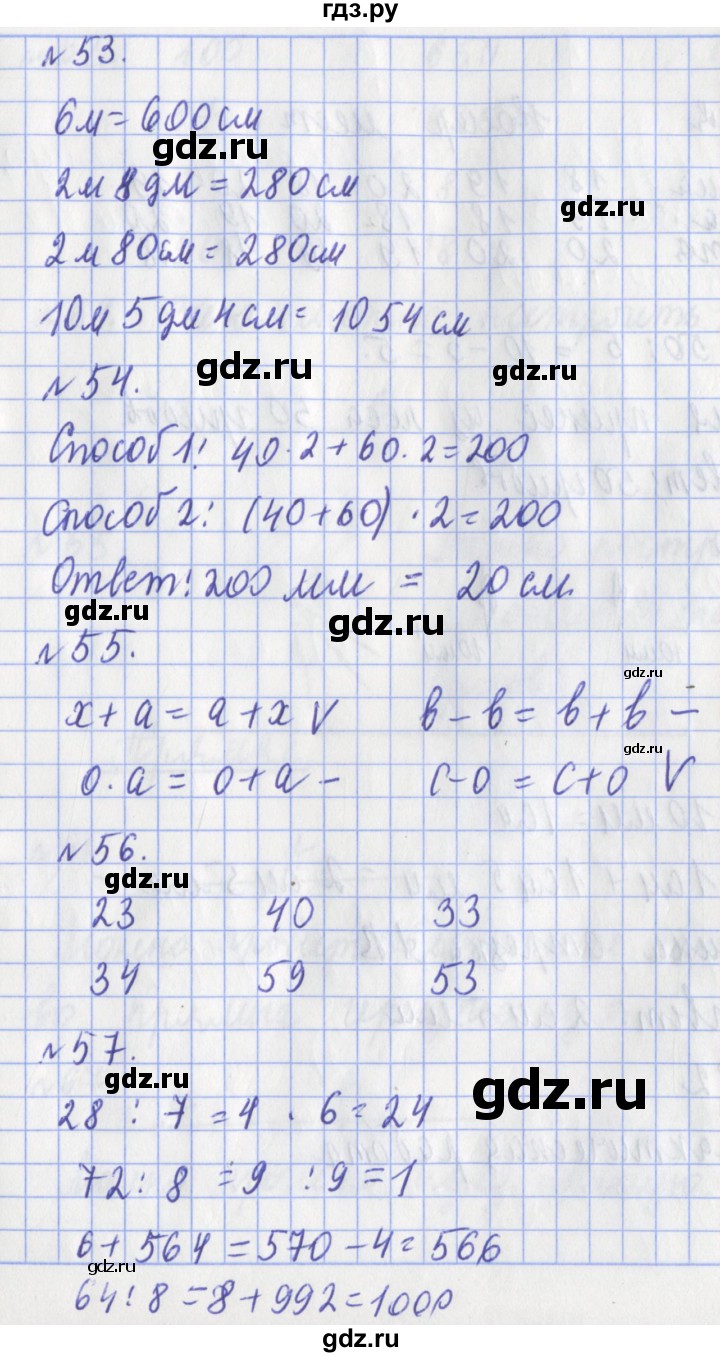 гдз.ру
№53.
6м = 600см
gdz.ru
2м 8дм = 280см
gdz.ru
2м 80см = 280см
10м 5дм 4см = 1054см
gdz.ru gdz.ru
№54.
Способ 1: 40·2+60·2=200
Способ 2: (40+60)·2=200
Ответ: 200мм = 20см.
gdz.ru gdz.ru
№55.
gdz.ru
x+a=a+x V в-в=в+в -
gdz.ru
0·a=0+a - c-0=c+0 V
№56.
gdz.ru
23 40 33
34 59 53
№57.
gdz.ru gdz.ru
28:7=4·6=24
72:8=9:9=1
6+564=570-4=566
gdz.ru
64:8=8+992=1000
gdz.ru